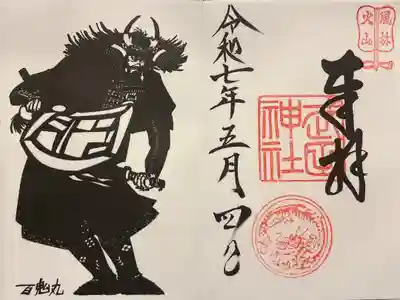 風林
火山
奉拝
武田
神社
令和七年五月四日
百鬼丸